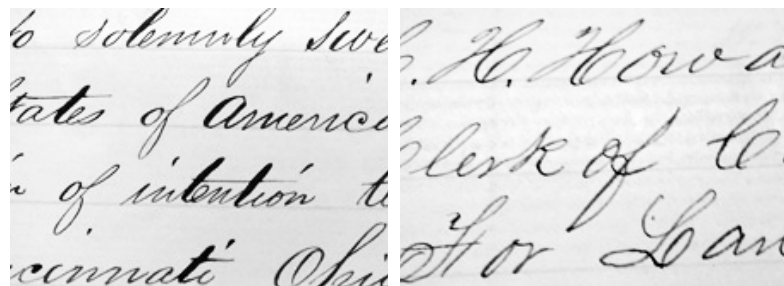 to solemnly swe
tates of America
of intention to
cinnati Ohio
H. Howa
Clerk of C
For Lan